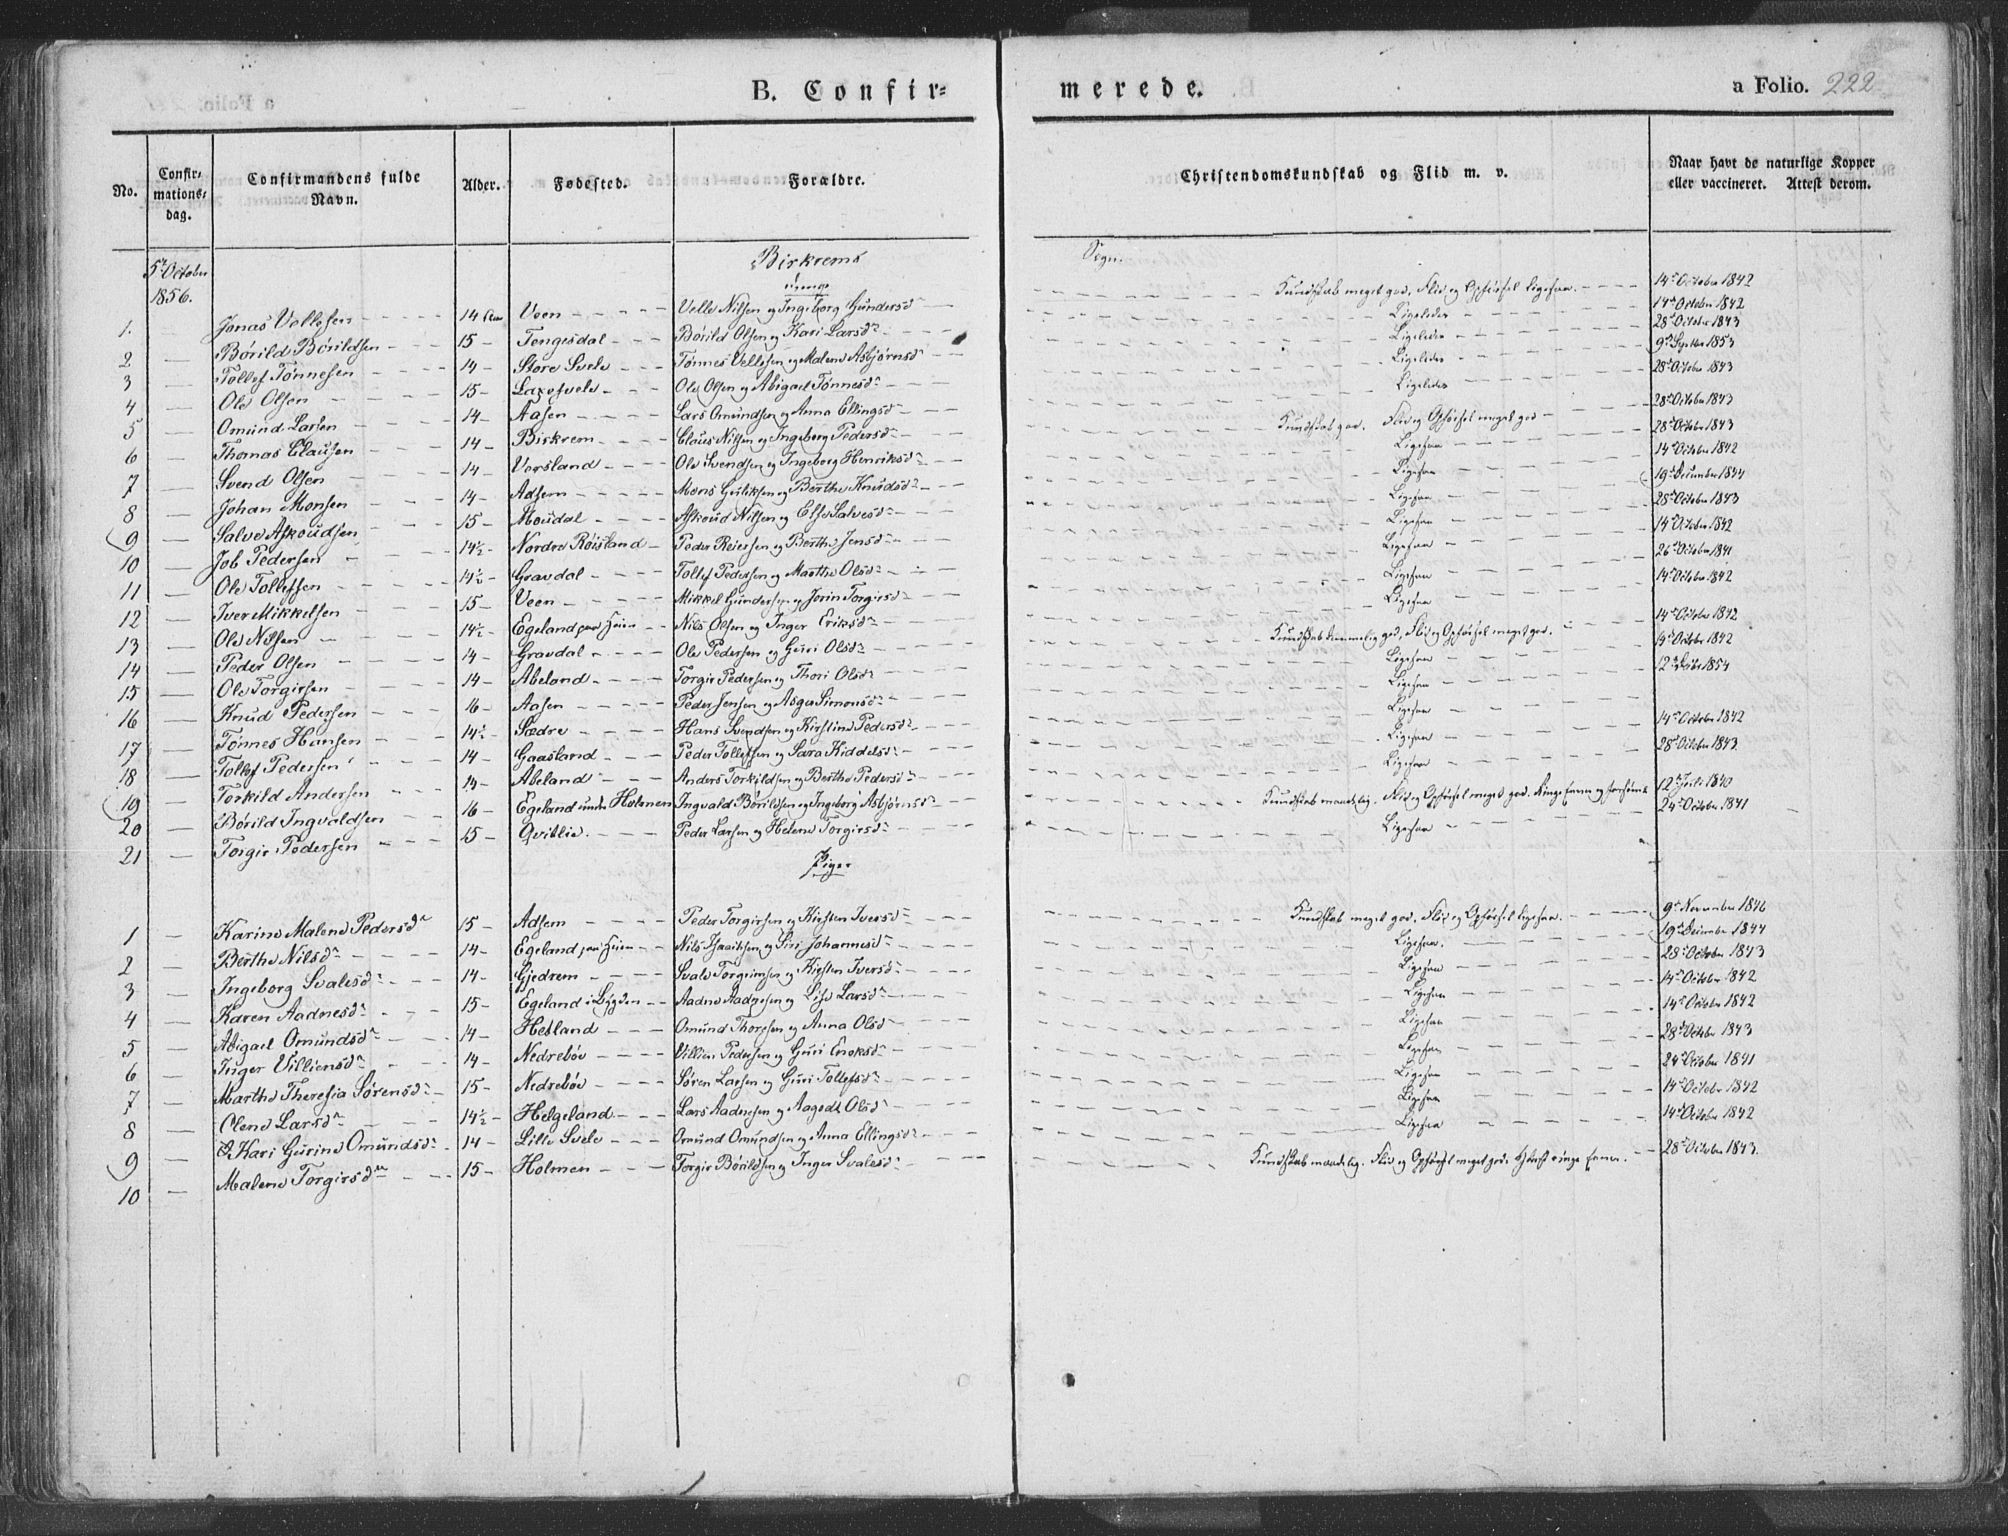 B. Confir=
merede.
a Folio. 222
No.
Confir=
mations=
dag.
Confirmandens fulde
Navn.
Alder.
Fødested.
Forældre.
Christendomskundskab og Flid m. v.
Naar havt de naturlige Kopper
eller vaccineret. Attest derom.
5te October
1856.
Birkrems
Sogn.
Drenge
1. Jonas Vellesen 14 Aar Veen Velle Nilsen og Ingeborg Gundersd Kundskab meget god, Flid og Opførsel ligesaa. 14de October 1842
2 Børild Børildsen 15 Tengesdal Børild Olsen og Kari Larsdr Ligeledes 14de October 1842
3 Tollef Tønnesen 14 Store Svele Tønnes Vellesen og Malene Asbjørnsdr Ligeledes 28de October 1843
4 Ole Olsen 15 Laxesvele Ole Olsen og Abigael Tønnesdr Ligeledes 9de Septbr 1853
5 Omund Larsen 14 Aasen Lars Omundsen og Anna Ellingsd Ligeledes 28de October 1843
6 Thomas Clausen 14 Birkrem Claus Nilsen og Ingeborg Pedersdr Kundskab god. Flid og Opførsel meget god 28de October 1843
7 Svend Olsen 14 Versland Ole Svendsen og Ingeborg Henriksdr Ligesaa 28de October 1843
8 Johan Monsen 14 Adsem Mons Guliksen og Berthe Knudsdr Ligesaa 14de October 1842
9 Salve Askoudsen 15 Moudal Askoud Nilsen og Else Salvesdr Ligesaa 19de December 1844
10 Job Pedersen 14½ Nordre Røisland Peder Reiersen og Berthe Jensdr Ligesaa 28de October 1843
11 Ole Tollefsen 14½ Gravdal Tollef Pedersen og Marthe Olsdr Ligesaa 14de October 1842
12 Iver Mikkelsen 15 Veen Mikkel Gundersen og Jorin Torgirsdr Ligesaa 26de October 1841
13 Ole Nilsen 14½ Egeland paa Heien Nils Olsen og Inger Eriksdr Ligesaa 14de October 1842
14 Peder Olsen 14 Gravdal Ole Pedersen og Guri Olsdr Kundskab temmelig god, Flid og Opførsel meget god. 14de October 1842
15 Ole Torgirsen 14 Abeland Torgir Pedersen og Thori Olsdr Ligesaa 14de October 1842
16 Knud Pedersen 16 Aasen Peder Jensen og Asger Simonsdr Ligesaa 12te 1854
17 Tønnes Hansen 14½ Sædre Hans Svendsen og Kirstine Pedersdr Ligesaa
18 Tollef Pedersen 14 Gaasland Peder Tollefsen og Sara Kiddelsdr Ligesaa 14de October 1842
19 Torkild Andersen 14 Abeland Anders Torkildsen og Berthe Pedersdr Ligesaa 28de October 1843
20 Børild Ingvaldsen 16 Egeland under Holmen Ingvald Børildsen og Ingeborg Asbjørnsdr Kundskab maadelig. Flid og Opførsel meget god. Ringe Evner og forsømt 12te Juli 1840
21 Torgir Pedersen 15 Qvitlie Peder Larsen og Helene Torgirsdr Ligesaa 24de October 1841
Piger
1 Karine Malene Pedersdr 15 Adsem Peder Torgirsen og Kirsten Iversdr Kundskab meget god, Flid og Opførsel ligesaa. 9de November 1846
2 Berthe Nilsdr 14 Egeland paa Heien Nils Isaaksen og Siri Johannesdr Ligesaa. 19de December 1844
3 Ingeborg Svalesdr 14 Gjedrem Svale Torgrimsen og Kirsten Iversdr Ligesaa 28de October 1843
4 Karen Aadnesdr 15 Egeland i Bygden Aadne Aadnesen og Lise Larsdr Ligesaa 14de October 1842
5 Abigael Omundsdr 14 Hetland Omund Thoresen og Anna Olsdr Ligesaa 14de October 1842
6 Inger Villiensdr 14 Nedrebøe Villien Pedersen og Guri Enoksdr Ligesaa 28de October 1843
7 Marthe Theresia Sørensdr 15 Nedrebøe Søren Larsen og Guri Tollefsdr Ligesaa 24de October 1841
8 Olene Larsdr 14½ Helgeland Lars Aadnesen og Aagodt Olsdr Ligesaa 14de October 1842
9 Kari Gurine Omundsdr 14 Lille Svele Omund Omundsen og Anna Ellingsdr Ligesaa 14de October 1842
10 Malene Torgirsdr 15 Holmen Torgir Børildsen og Inger Svalesdr Kundskab maadelig. Flid og Opførsel meget god. ringe Evner. 28de October 1843